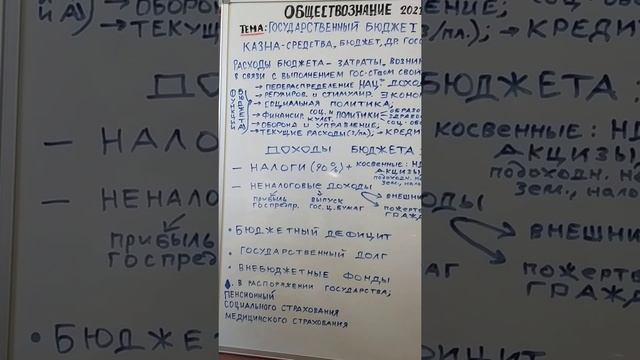 ОБЩЕСТВОЗНАНИЕ 202
ТЕМА: ГОСУДАРСТВЕННЫЙ БЮДЖЕТ
КАЗНА-СРЕДСТВА, БЮДЖЕТ, ДР. ГОС
РАСХОДЫ БЮДЖЕТА - ЗАТРАТЫ, ВОЗНИК
В СВЯЗИ С ВЫПОЛНЕНИЕМ ГОС-СТВОМ СВОИ
ФУНКЦИИ БЮДЖЕТА
→ ПЕРЕРАСПРЕДЕЛЕНИЕ НАЦ. ДОХО
→ РЕГУЛИРОВ. И СТИМУЛИР. ЭКОНО
→ СОЦИАЛЬНАЯ ПОЛИТИКА,
→ ФИНАНСИР. СОЦ. И КУЛЬТ. ПОЛИТИКИ ОБРАЗО ЗДРАВОО СОЦ. ОБЕ
→ ОБОРОНА И УПРАВЛЕНИЕ,
→ ТЕКУЩИЕ РАСХОДЫ (З/ПЛ.); → КРЕДИ
ДОХОДЫ БЮДЖЕТА:
— НАЛОГИ (90%) + КОСВЕННЫЕ: НД
АКЦИЗЫ
ПОДОХОДН. Н
ЗЕМ., НАЛО
— НЕНАЛОГОВЫЕ ДОХОДЫ
прибыль госпредпр.
ВЫПУСК ГОС. Ц. БУМАГ
→ ВНЕШНИ
→ ПОЖЕРТ
ГРАЖДА
• БЮДЖЕТНЫЙ ДЕФИЦИТ
• ГОСУДАРСТВЕННЫЙ ДОЛГ
• ВНЕБЮДЖЕТНЫЕ ФОНДЫ
В РАСПОРЯЖЕНИИ ГОСУДАРСТВА;
ПЕНСИОННЫЙ
СОЦИАЛЬНОГО СТРАХОВАНИЯ
МЕДИЦИНСКОГО СТРАХОВАНИЯ